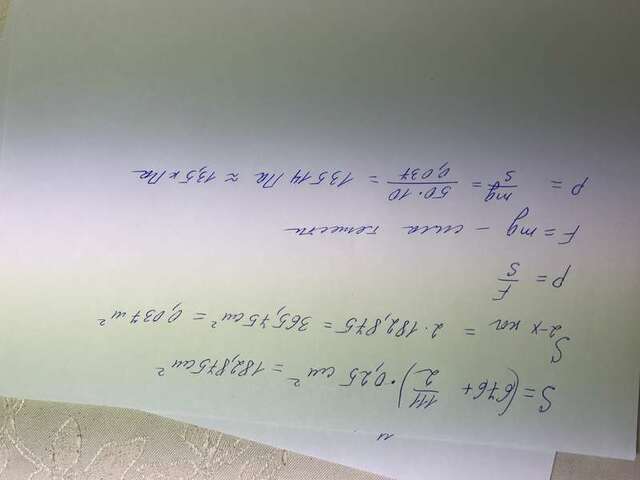 S = (676 + 111/2) · 0,25 см² = 182,875 см²
S 2-х ног = 2 · 182,875 = 365,75 см² = 0,037 м²
P = F/S
F = mg – сила тяжести
P = mg/S = 50·10/0,037 = 13514 Па ≈ 13,5 кПа